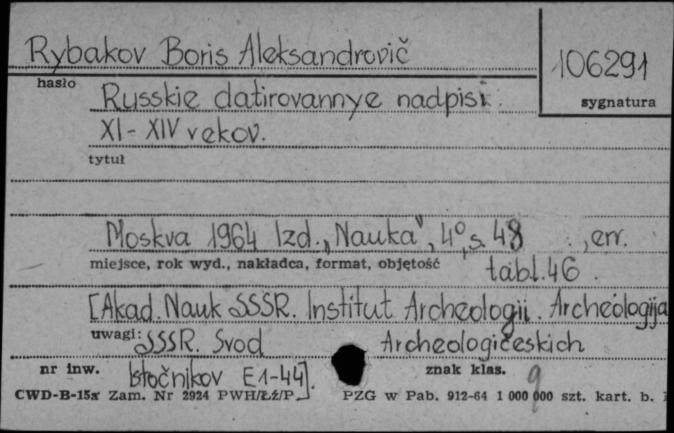 Rybakov Boris Aleksandrovič
106291
hasło
sygnatura
Russkie datirovannye nadpisi
XI-XIV vekov.
tytuł
Moskva 1964 Izd. „Nauka", 4°, s. 48 , err.
miejsce, rok wyd., nakładca, format, objętość
tabl. 46.
[Akad. Nauk SSSR. Institut Archeologii. Archeologija
uwagi: SSSR. Svod Archeologičeskich
nr inw. Istočnikov E1-44]. znak klas. 9
CWD-B-15a Zam. Nr 2924 PWH/Łź/P PZG w Pab. 912-64 1 000 000 szt. kart. b.